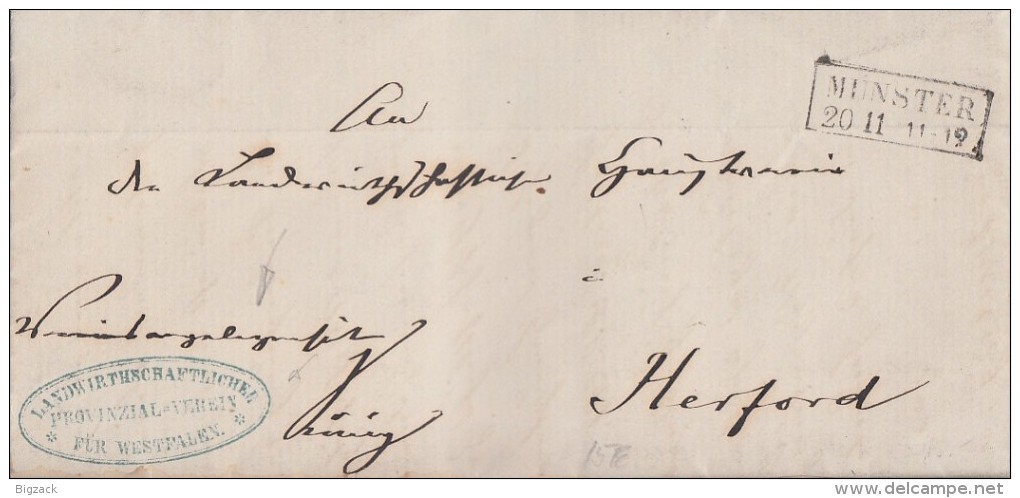 MÜNSTER
20 11 11-12
An
den Landwirthschaftlichen Hauptverein
Vereinsangelegenheit
Herford
LANDWIRTHSCHAFTLICHER
PROVINZIAL=VEREIN
* FÜR WESTFALEN. *
Bigzack
delcampe.net